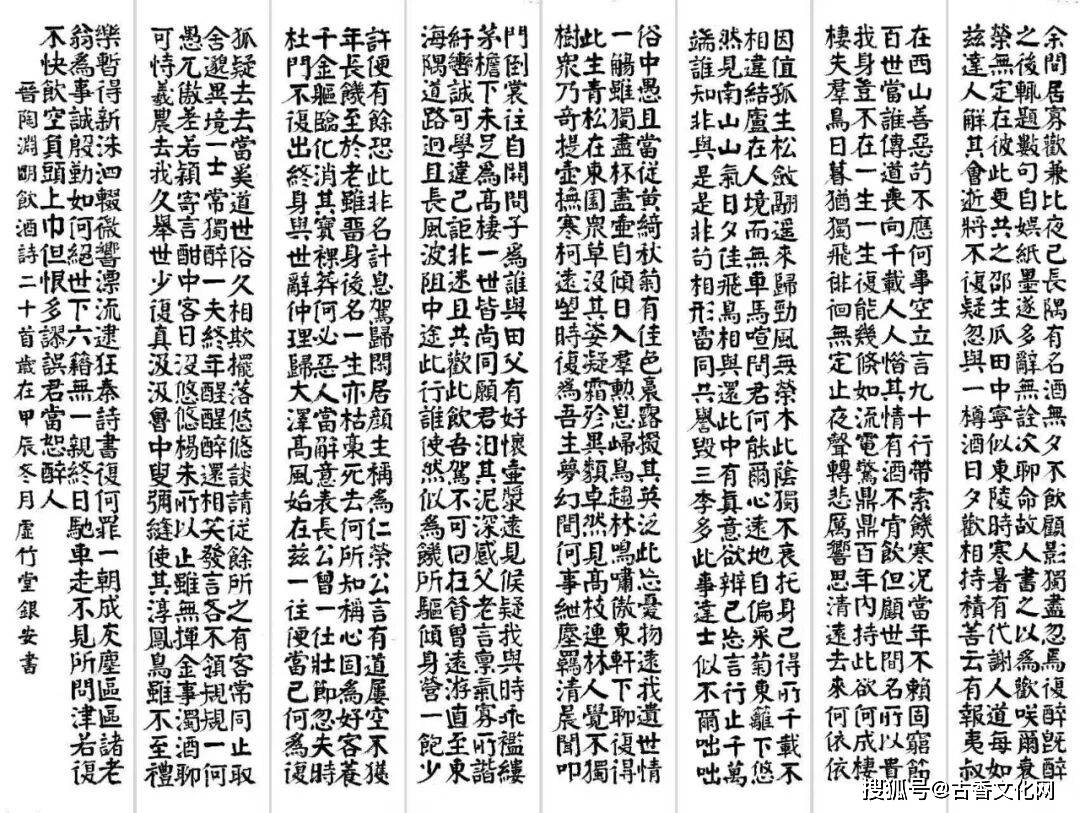 余間居寡歡兼比夜已長隅有名酒無夕不飲顧影獨盡忽焉復醉既醉
之後輒題數句自娛紙墨遂多辭無詮次聊命故人書之以為歡咲爾衰
榮無定在彼此更共之邵生瓜田中寧似東陵時寒暑有代謝人道每如
茲達人解其會逝將不復疑忽與一樽酒日夕歡相持積善云有報夷叔
在西山善惡苟不應何事空立言九十行帶索饑寒況當年不賴固窮節
百世當誰傳道喪向千載人人惜其情有酒不肯飲但顧世間名所以貴
我身豈不在一生一生復能幾倏如流電驚鼎鼎百年內持此欲何成棲
棲失羣鳥日暮猶獨飛徘徊無定止夜聲轉悲厲響思清遠去來何依依
因值孤生松斂翮遥來歸勁風無榮木此蔭獨不衰托身已得所千載不
相違結廬在人境而無車馬喧問君何能爾心遠地自偏采菊東籬下悠
然見南山山氣日夕佳飛鳥相與還此中有真意欲辨已忘言行止千萬
端誰知非與是是非苟相形雷同共譽毀三季多此事達士似不爾咄咄
俗中愚且當從黄綺秋菊有佳色裛露掇其英泛此忘憂物遠我遺世情
一觴雖獨盡杯盡壺自傾日入羣勲息歸鳥趨林鳴嘯傲東軒下聊復得
此生青松在東園衆草沒其姿凝霜殄異類卓然見高枝連林人覺不獨
樹衆乃奇提壺撫寒柯遠望時復為吾生夢幻間何事紲塵羈清晨聞叩
門倒裳往自開問子為誰與田父有好懷壺漿遠見候疑我與時乖襤縷
茅檐下未足為高棲一世皆尚同願君汩其泥深感父老言禀氣寡所諧
紆轡誠可學違己詎非迷且共歡此飲吾駕不可回在昔曾遠游直至東
海隅道路迥且長風波阻中途此行誰使然似為饑所驅傾身營一飽少
許便有餘恐此非名計息駕歸閑居顏生稱為仁榮公言有道屢空不獲
年長饑至於老雖留身後名一生亦枯槁死去何所知稱心固為好客養
千金軀臨化消其寶裸葬何必惡人當解意表長公曾一仕壯節忽失時
杜門不復出終身與世辭仲理歸大澤高風始在茲一往便當已何為復
狐疑去去當奚道世俗久相欺擺落悠悠談請從餘所之有客常同止取
舍邈異境一士常獨醉一夫終年醒醒醉還相笑發言各不領規規一何
愚兀傲差若穎寄言酣中客日沒悠悠楊朱所以止雖無揮金事濁酒聊
可恃羲農去我久舉世少復真汲汲魯中叟彌縫使其淳鳳鳥雖不至禮
樂暫得新洙泗輟微響漂流逮狂秦詩書復何罪一朝成灰塵區區諸老
翁為事誠殷勤如何絕世下六籍無一親終日馳車走不見所問津若復
不快飲空負頭上巾但恨多謬誤君當恕醉人
晉陶淵明飲酒詩二十首歲在甲辰冬月虛竹堂銀安書
搜狐号@古香文化网